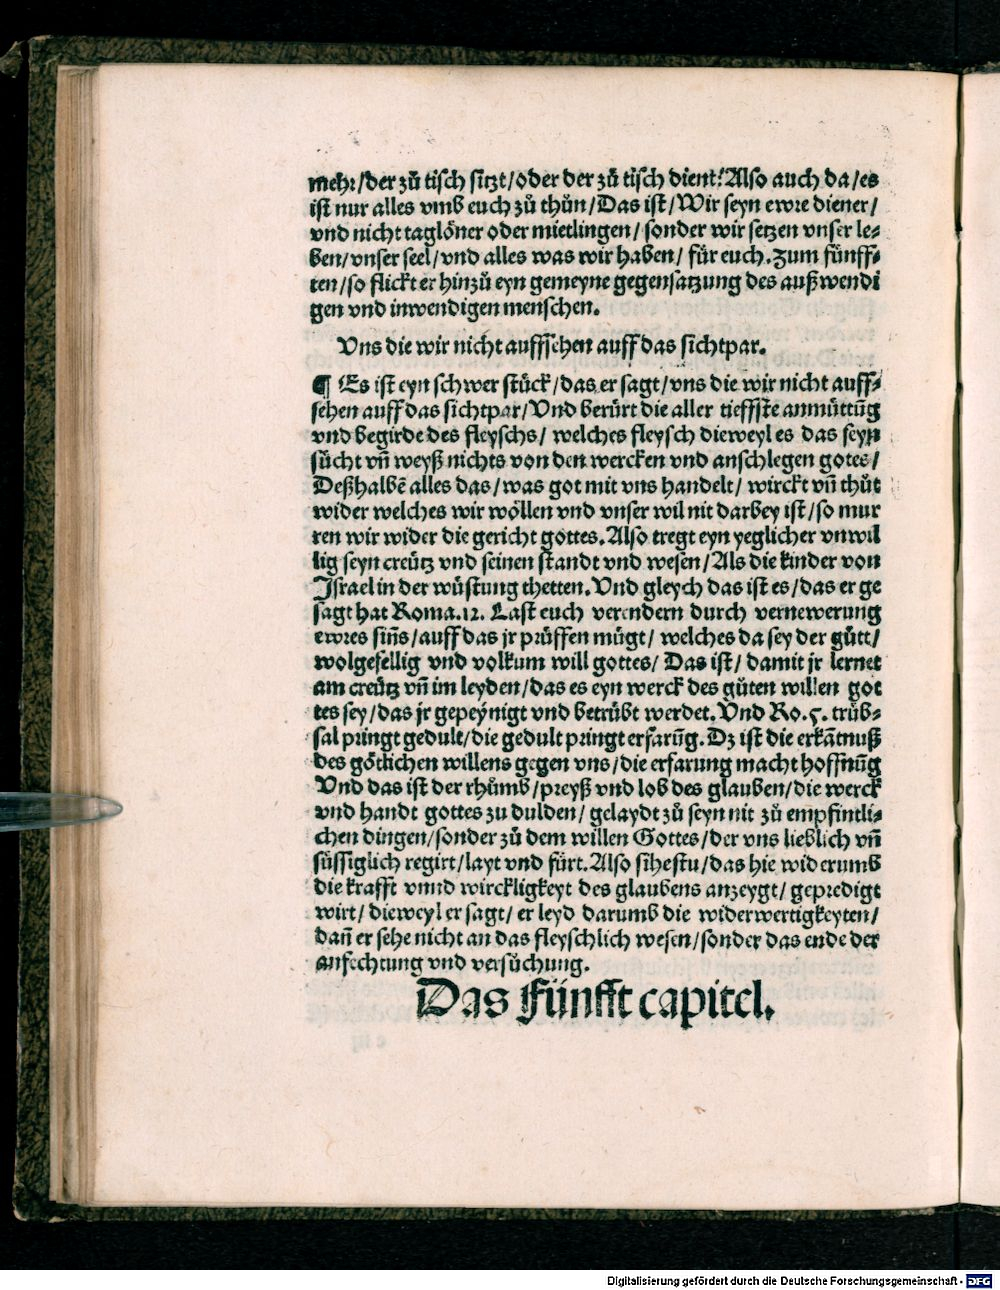 mehr/der zů tisch sitzt/oder der zů tisch dient? Also auch da/es
ist nur alles vmb euch zů thůn/Das ist/Wir seyn ewre diener/
vnd nicht taglöner oder mietlingen/sonder wir setzen vnser le⸗
ben/vnser seel/vnd alles was wir haben/ für euch. Zum fünff⸗
ten/so flickt er hinzů eyn gemeyne gegensatzung des außwendi
gen vnd inwendigen menschen.
Vns die wir nicht auffsehen auff das sichtpar.
¶ Es ist eyn schwer stück/das er sagt/vns die wir nicht auff⸗
sehen auff das sichtpar/Vnd berürt die aller tieffste anmůttũg
vnd begirde des fleyschs/ welches fleysch dieweyl es das seyn
sůcht vñ weyß nichts von den wercken vnd anschlegen gotes/
Deßhalbẽ alles das/was got mit vns handelt/ wirckt vñ thůt
wider welches wir wöllen vnd vnser wil nit darbey ist/so mur
ren wir wider die gericht gottes. Also tregt eyn yeglicher vnwil
lig seyn creütz vnd seinen standt vnd wesen/Als die kinder von
Israel in der wüstung thetten. Vnd gleych das ist es/das er ge
sagt hat Roma.12. Last euch verendern durch vernewerung
ewres siñs/auff das jr prüffen mügt/ welches da sey der gůtt/
wolgefellig vnd volkum will gottes/ Das ist/ damit jr lernet
am creütz vñ im leyden/das es eyn werck des gůten willen got
tes sey/das jr gepeynigt vnd betrübt werdet. Vnd Ro.5. trüb⸗
sal pringt gedult/die gedult pringt erfarũg. Dz ist die erkãtnuß
des götlichen willens gegen vns/die erfarung macht hoffnũg
Vnd das ist der rhůmb/preyß vnd lob des glauben/die werck
vnd handt gottes zu dulden/ gelaydt zů seyn nit zů empfintli⸗
chen dingen/sonder zů dem willen Gottes/der vns lieblich vñ
süssiglich regirt/layt vnd fürt. Also sihestu/das hie widerumb
die krafft vnnd wirckligkeyt des glaubens anzeygt/ gepredigt
wirt/ dieweyl er sagt/ er leyd darumb die widerwertigkeyten/
dañ er sehe nicht an das fleyschlich wesen/sonder das ende der
anfechtung vnd versůchung.
Das Fünfft capitel.
Digitalisierung gefördert durch die Deutsche Forschungsgemeinschaft - DFG